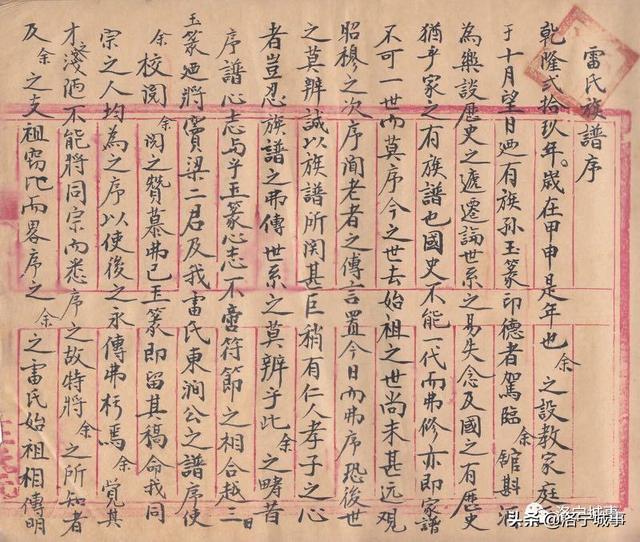 雷氏族譜序
乾隆弍拾玖年。歲在甲申是年也余之設教家庭
于十月望日廼有族孫玉篆印德者駕臨余館斟酒
為樂設歷史之遞遷論世系之易失念及國之有歷史
猶乎家之有族譜也國史不能一代而弗修亦即家譜
不可一世而莫序今之世去始祖之世尚未甚远覌
昭穆之次序闻老者之傳言置今日而弗序恐後世
之莫辨誠以族譜所関甚巨稍有仁人孝子之心
者豈忍族譜之弗傳世系之莫辨乎此余之疇昔
序譜心志与乎玉篆心志不啻符節之相合越三日
玉篆廼將竇梁二君及我雷氏東澗公之譜序使
余校閲余閲之贊慕弗已玉篆即留其稿命我同
宗之人均為之序以使後之永傳弗朽焉余覚其
才之淺陋不能将同宗而悉序之故特將余之所知者
及余之支祖窃比而畧序之余之雷氏始祖相傳明
洛宁城事
头条@洛宁城事